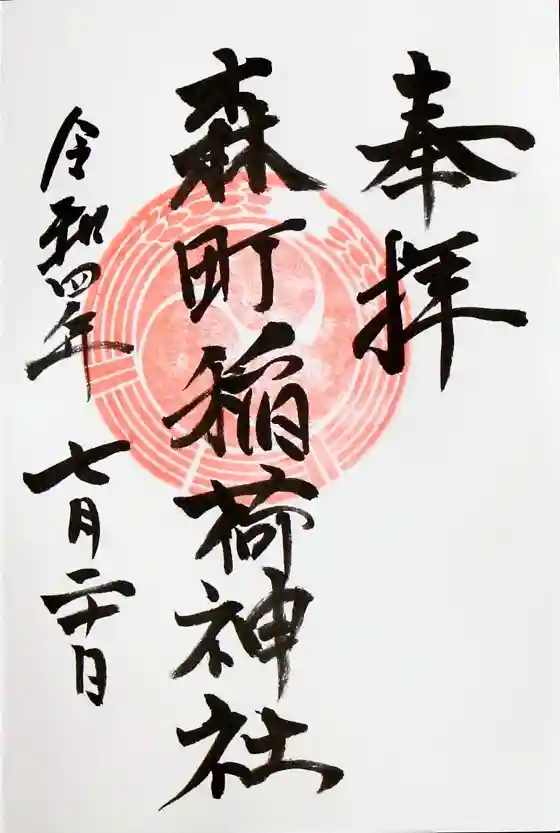 奉拝
森町稲荷神社
令和四年七月二十日